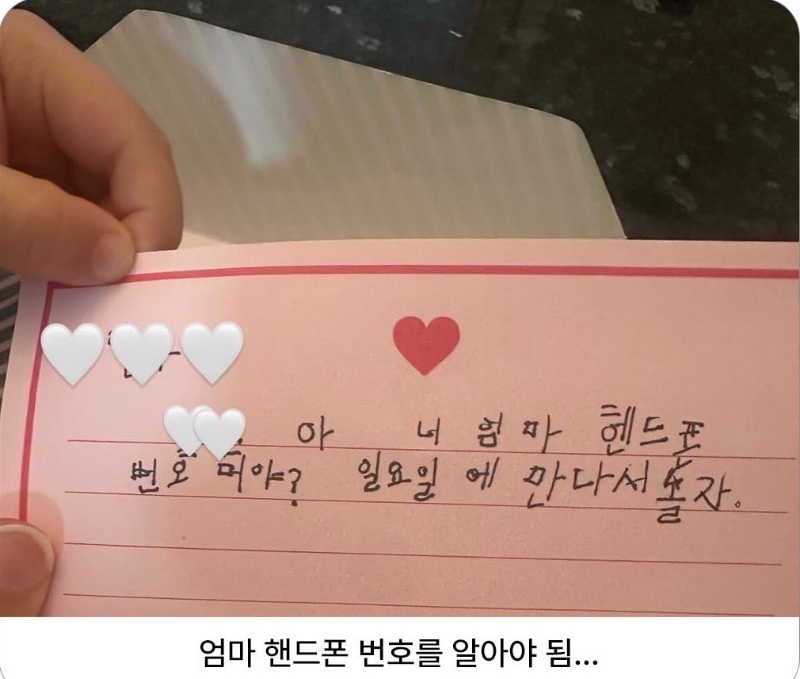 아 너 엄마 헨드폰
번호 머야? 일요일 에 만나서 놀자.
엄마 핸드폰 번호를 알아야 됨...